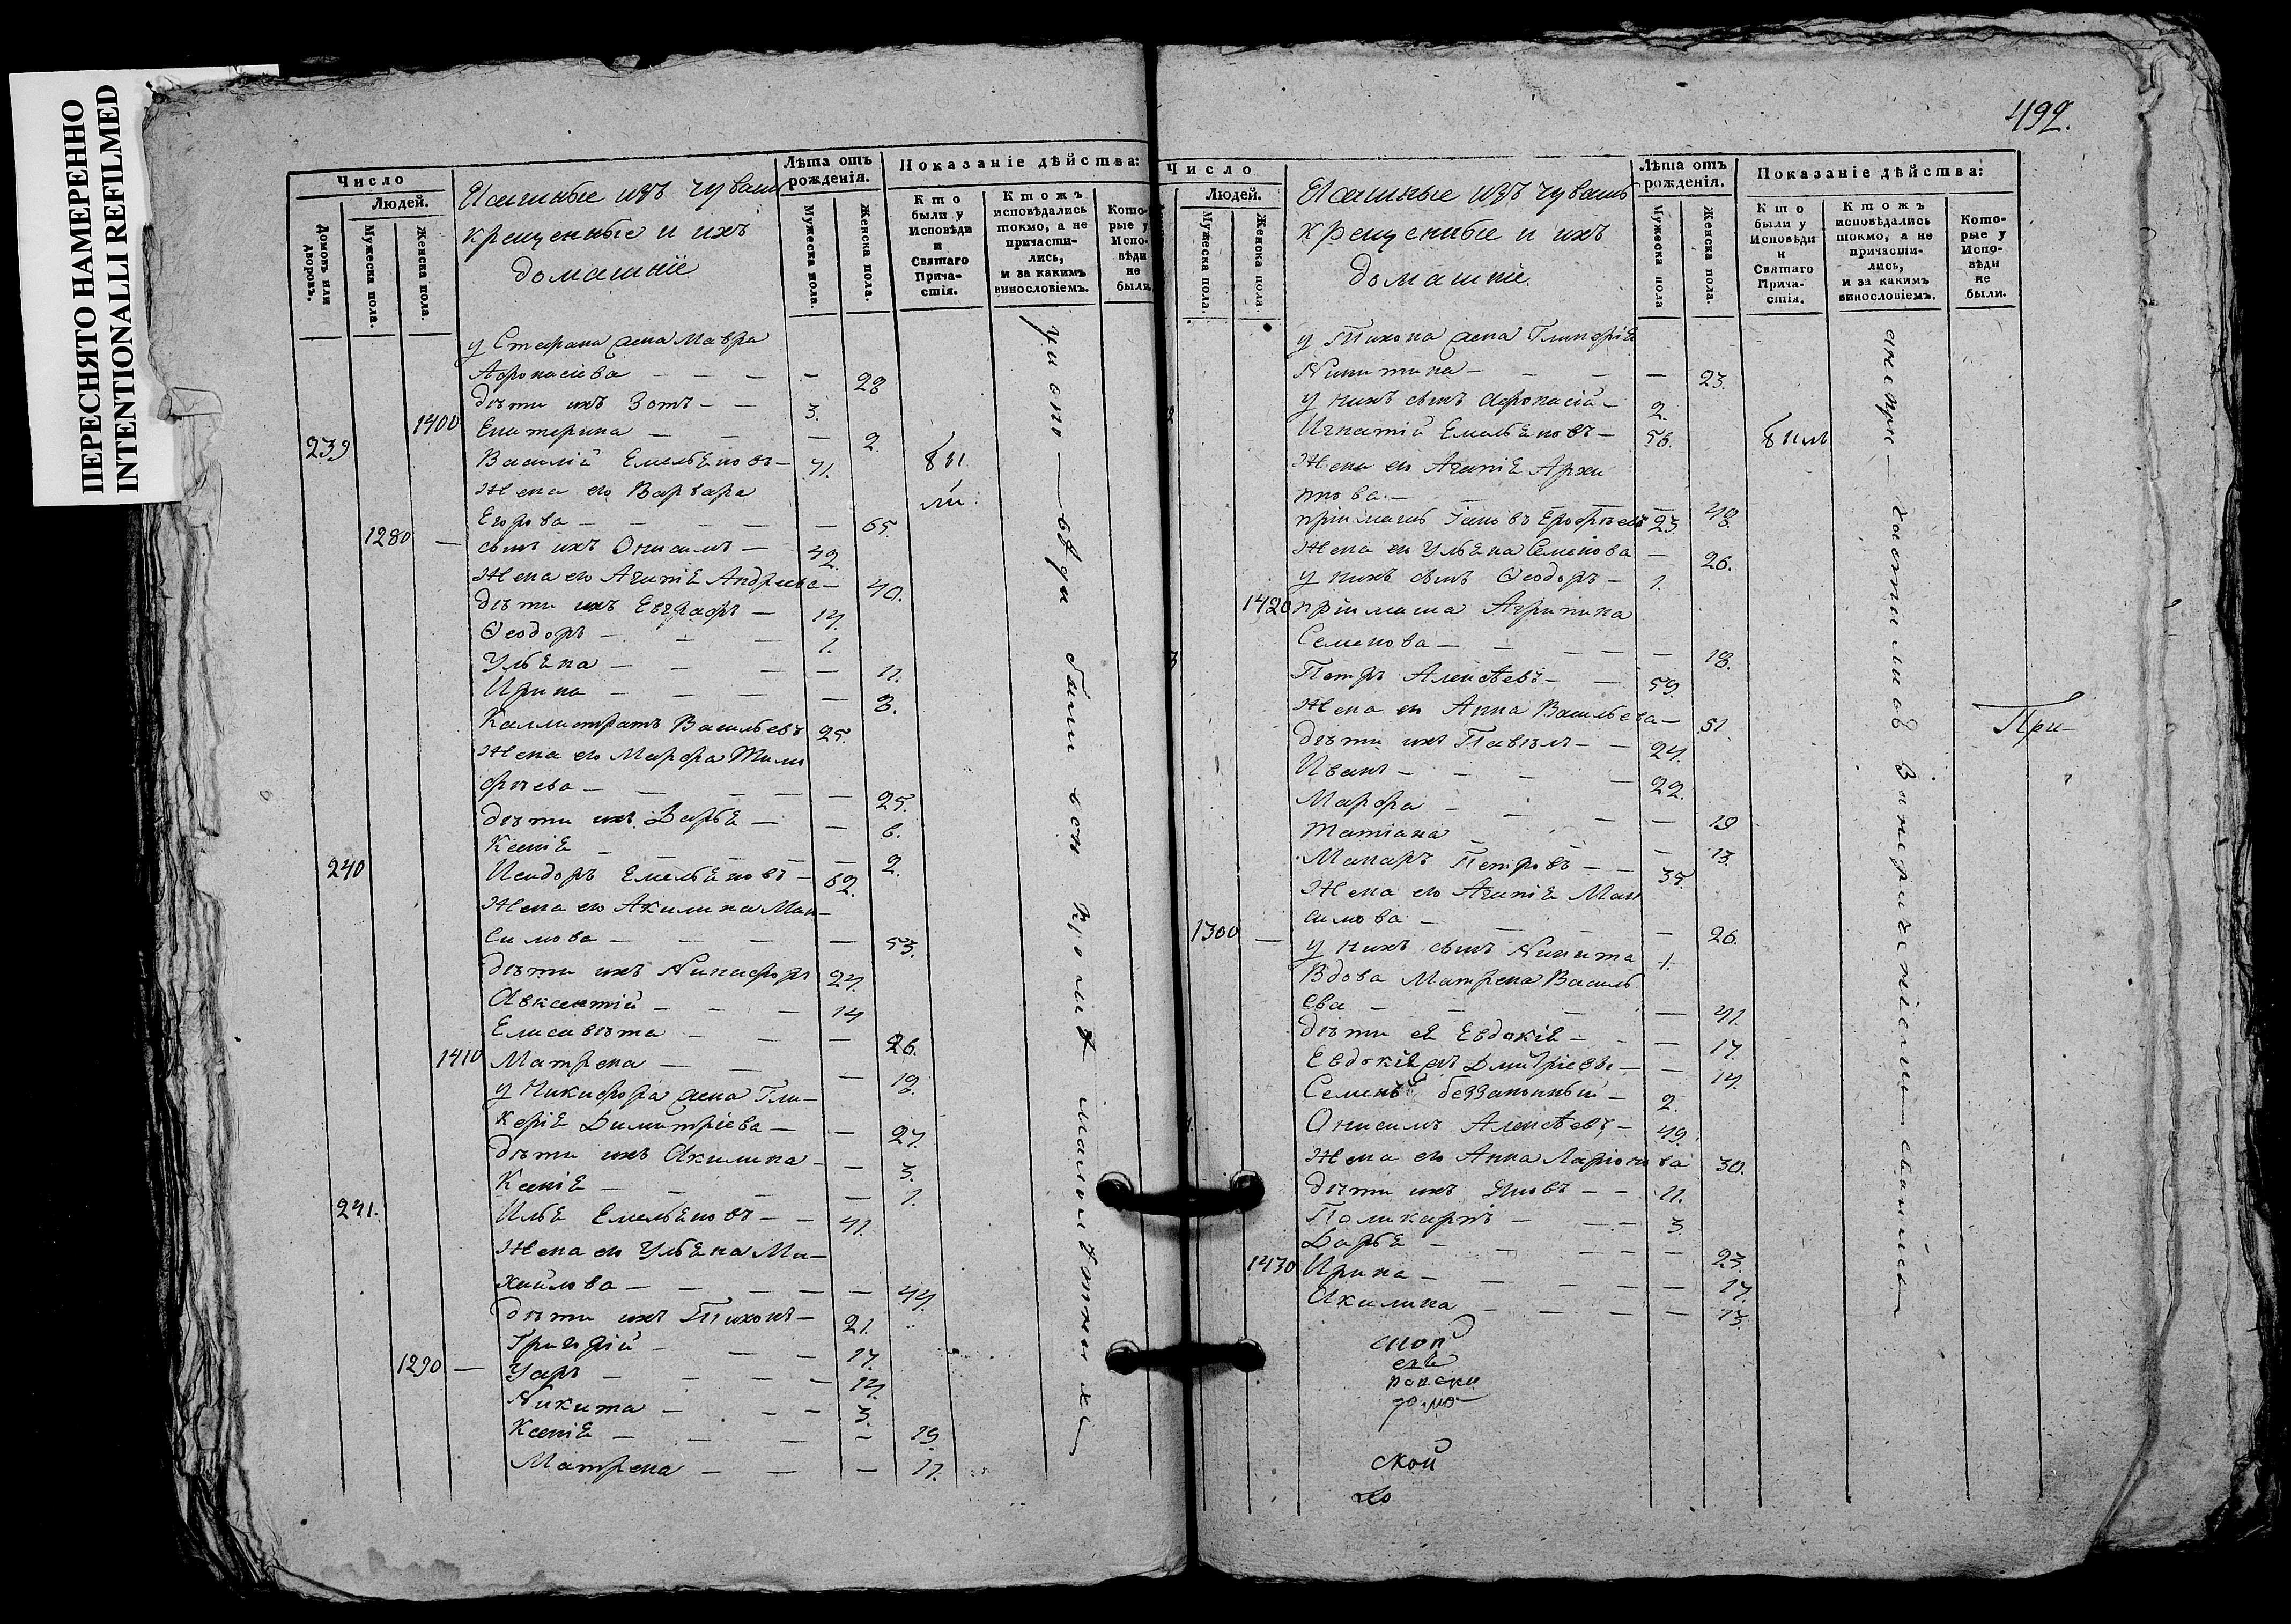 ПЕРЕСНЯТО НАМЕРЕННО
INTENTIONALLI REFILMED
Число
Людей.
Домовъ или дворовъ.
Мужеска пола.
Женска пола.
крещенные и ихъ
домашніе
Лѣта отъ рожденія.
Мужеска пола.
Женска пола.
Показаніе дѣйства:
Кто были у Исповѣди и Святаго Причастія.
Ктожъ исповѣдались токмо, а не причастились, и за какимъ винословіемъ.
Которые у Исповѣди не были.
у Стефана жена Мавра
Афонасіева — 28
дѣти ихъ Зотъ — 3.
1400 Екатерина — 2.
239 Василій Емельяновъ — 71. бы
Жена его Варвара ли
Егорова — 65.
1280 — сынъ ихъ Онисимъ — 42.
Жена его Агапія Андреева — 40.
дѣти ихъ Евграфъ — 14.
Ѳеодоръ — 1.
Ульяна — 11.
Ирина — 8.
Каллистратъ Васильевъ 25.
Жена его Марфа Тимо
фѣева — 25.
дѣти ихъ Дарья — 6.
Ксенія — 2.
240 Исидоръ Емельяновъ — 62.
Жена его Акилина Мак-
симова — 53.
дѣти ихъ Никифоръ 24.
Авксентій — 14
Елисавѣта — 26.
1410 Матрена — 19.
у Никифора жена Гли-
керія Димитріева — 27.
дѣти ихъ Акилина — 3.
Ксенія — 1.
241. Илья Емельяновъ — 41.
Жена его Ульяна Ми-
хайлова — 44.
дѣти ихъ Тихонъ — 21.
Григорій — 17.
1290 — Уаръ — 14.
Никита — 3.
Ксенія — 19.
Матрена — 11.
были вси кромѣ малолѣтныхъ
492.
Число
Людей.
Мужеска пола.
Женска пола.
крещенные и ихъ
домашніе.
Лѣта отъ рожденія.
Мужеска пола
Женска пола.
Показаніе дѣйства:
Кто были у Исповѣди и Святаго Причастія.
Ктожъ исповѣдались токмо, а не причастились, и за какимъ винословіемъ.
Которые у Исповѣди не были.
у Тихона жена Гликерія
Никитина — 23.
у нихъ сынъ Афонасій — 2.
Игнатій Емельяновъ — 56. были
Жена его Агапія Архи
пова — 48.
пріимышъ Ерофѣевъ 23
Жена его Ульяна Семенова — 26.
у нихъ сынъ Ѳеодоръ — 1.
1420 Агрипина
Семенова — 18.
Петръ Алексѣевъ — 59.
Жена его Анна Васильева — 51.
дѣти ихъ Павелъ — 24.
Иванъ — 22.
Марфа — 19
Татіана — 13.
Макаръ Петровъ — 35.
Жена его Агапія Мак
симова — 26.
1300 — у нихъ сынъ Никита 1.
Вдова Матрена Василь
ева — 41.
дѣти ея Евдокія — 17.
14.
Семенъ беззаконный — 2.
Онисимъ Алексѣевъ — 49.
Жена его Анна Ларіонова 30.
дѣти ихъ Яковъ — 11.
Поликарпъ — 3.
Дарья — 23.
1430 Ирина — 17.
Акилина — 13.
При-
ской